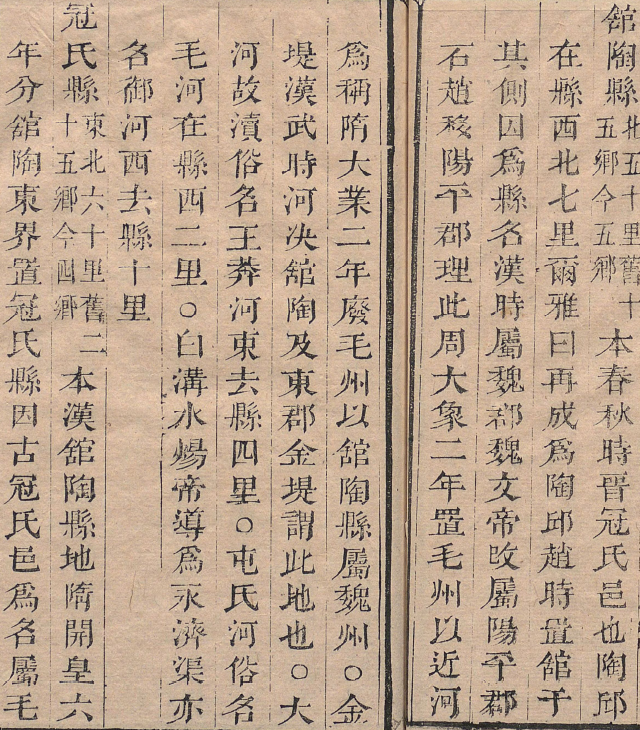 舘陶縣北五十里舊十五鄉今五鄉本春秋時晉冠氏邑也陶邱
在縣西北七里爾雅曰再成爲陶邱趙時置舘于
其側因爲縣名漢時屬魏郡魏文帝改屬陽平郡
石趙移陽平郡理此周大象二年置毛州以近河
爲稱隋大業二年廢毛州以舘陶縣屬魏州○金
堤漢武時河決舘陶及東郡金堤謂此地也○大
河故瀆俗名王莽河東去縣四里○屯氏河俗名
毛河在縣西二里○白溝水煬帝導爲永濟渠亦
名御河西去縣十里
冠氏縣東北六十里舊二十五鄉今四鄉本漢舘陶縣地隋開皇六
年分舘陶東界置冠氏縣因古冠氏邑爲名屬毛